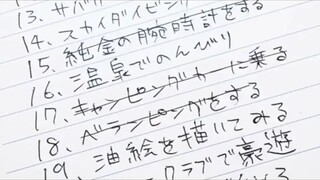 13. サバ
14. スカイダイビング
15. 純金の腕時計をする
16. 温泉でのんびり
17. キャンピングカーに乗る
18. ベランピングをする
19. 油絵を描いてみる
クラブで豪遊